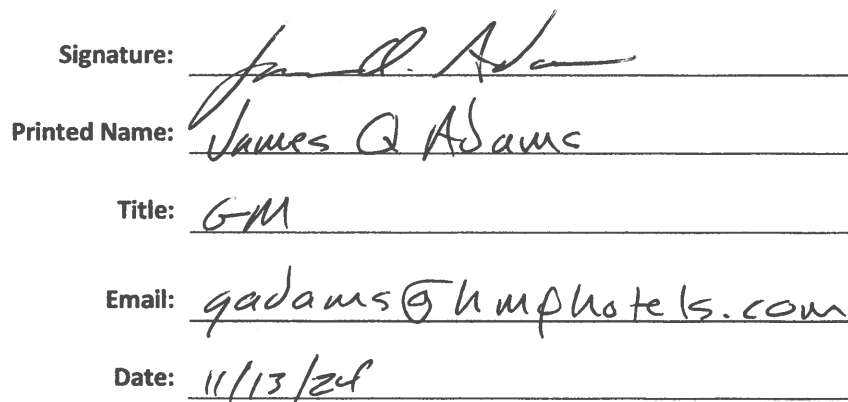 Signature: James Q. Adams
Printed Name: James Q Adams
Title: GM
Email: qadams@hmphotels.com
Date: 11/13/24